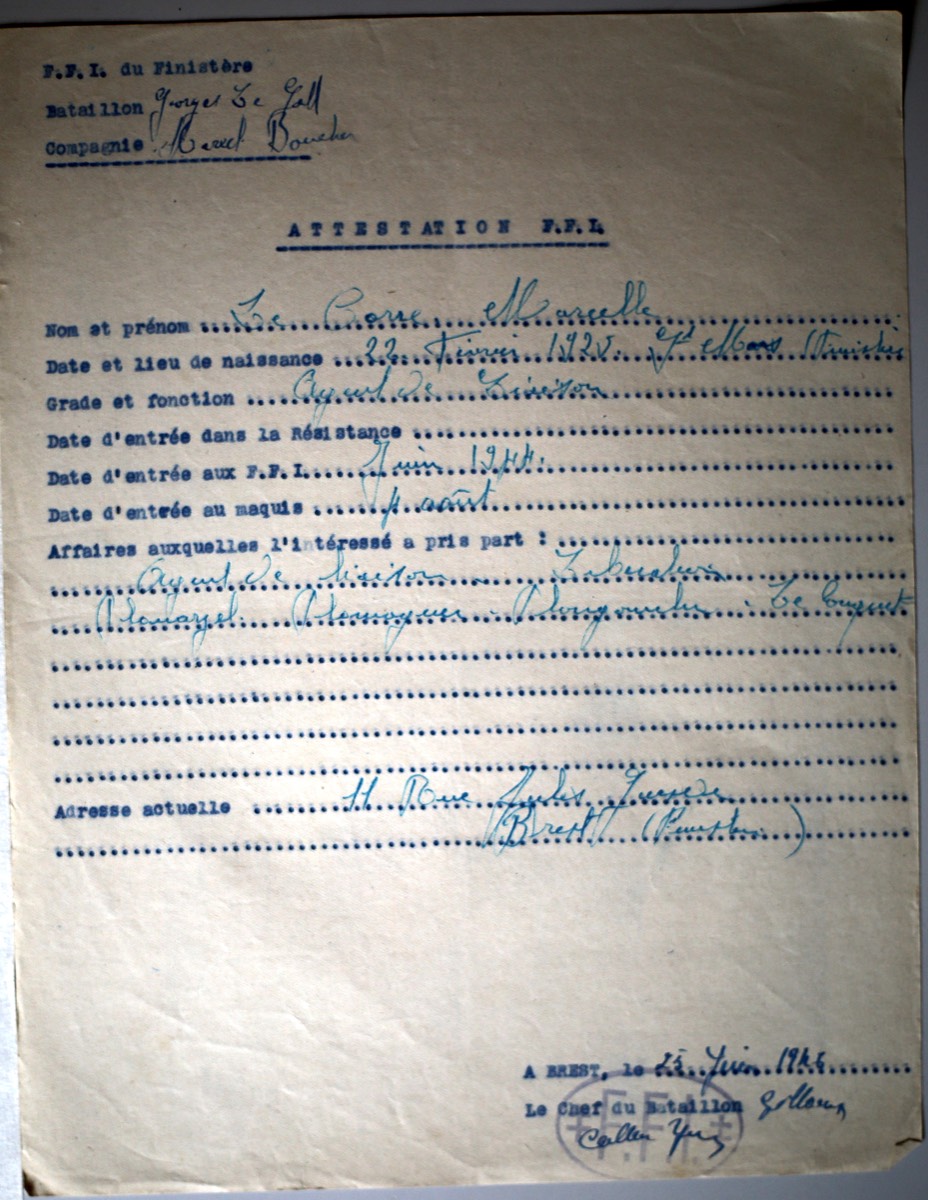 F.F.I. du Finistère
Bataillon Georges Le Gall
Compagnie Marcel Boucher
ATTESTATION F.F.I.
Nom et prénom Le Corre Marcelle
Date et lieu de naissance 22 Février St Mars (Finistère
Grade et fonction Agent de Liaison
Date d'entrée dans la Résistance
Date d'entrée aux F.F.I. Juin 1944.
Date d'entrée au maquis 4 août
Affaires auxquelles l'intéressé a pris part :
Agent de liaison
Plouarzel. Ploumoguer. Plougonvelin. Le Conquet
Adresse actuelle 11 Rue Jules
Brest (Finistère)
A BREST, le 25 Juin 1945
Le Chef du Bataillon
F.F.I.